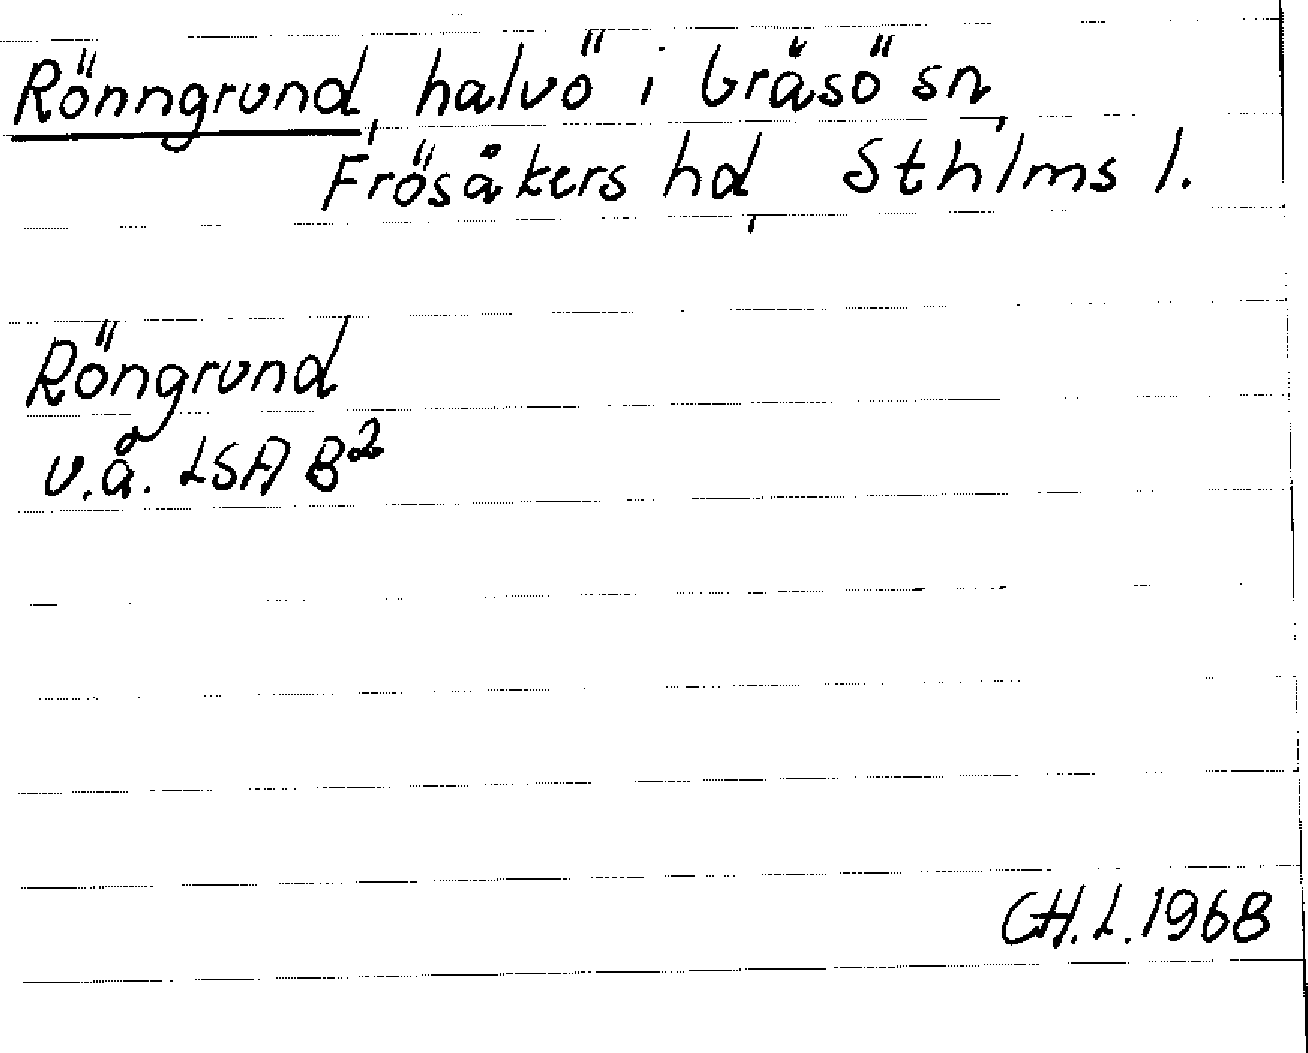 Rönngrund, halvö i Gräsö sn,
Frösåkers hd, Sthlms l.
Röngrund
u.å. LSA B²
CH.L.1968